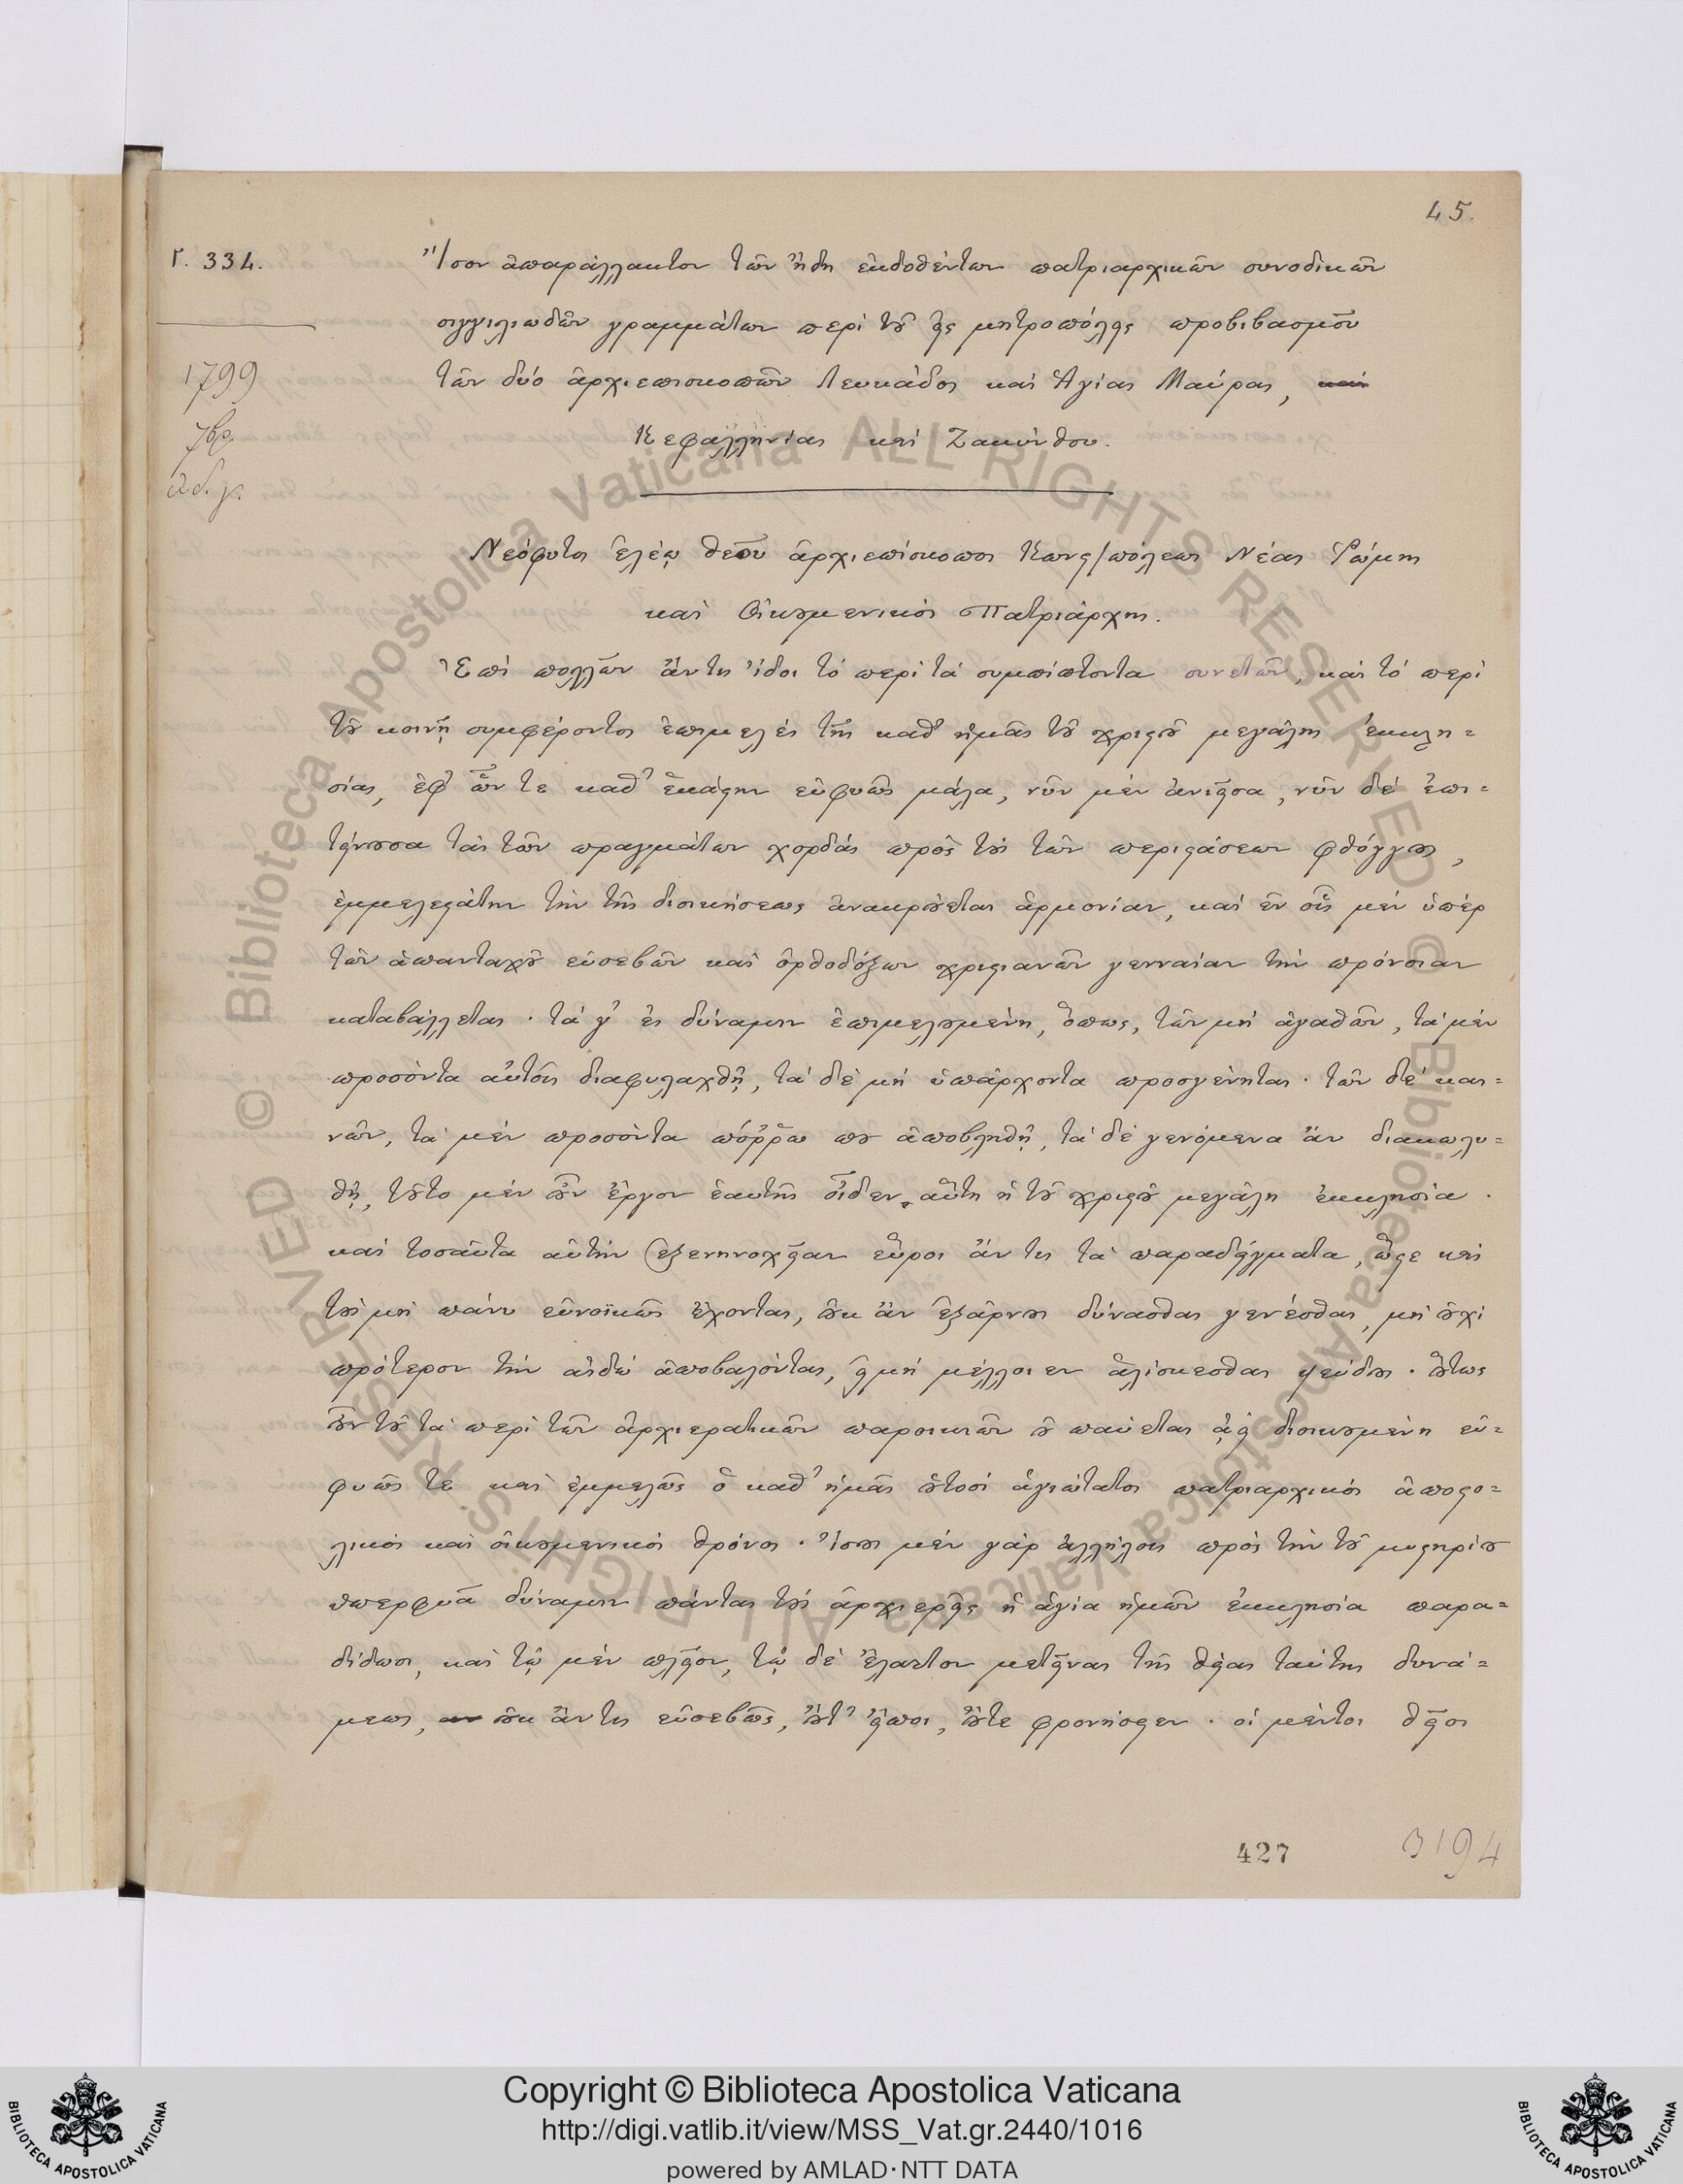 45.
Γ. 334.
Ἴσον ἀπαράλλακτον τῶν ἤδη ἐκδοθέντων πατριαρχικῶν συνοδικῶν
σιγγιλιωδῶν γραμμάτων περὶ τοῦ εἰς μητροπόλεις προβιβασμοῦ
1799
τῶν δύο ἀρχιεπισκοπῶν Λευκάδος καὶ Ἁγίας Μαύρας, καὶ
7βρ.
Κεφαλληνίας καὶ Ζακύνθου.
Νεόφυτος ἐλέῳ θεοῦ ἀρχιεπίσκοπος Κωνς/πόλεως Νέας Ῥώμης
καὶ Οἰκουμενικὸς Πατριάρχης.
Ἐπὶ πολλῶν ἄν τις ἴδοι τὸ περὶ τὰ συμπίπτοντα συνετῶν, καὶ τὸ περὶ
τοῦ κοινῇ συμφέροντος ἐπιμελὲς τῆς καθ' ἡμᾶς τοῦ χριστοῦ μεγάλης ἐκκλη=
σίας, ἐφ' ὧν τε καθ' ἑκάστην εὐφυῶς μάλα, νῦν μὲν ἀνιεῖσα, νῦν δὲ ἐπι=
τείνουσα τὰς τῶν πραγμάτων χορδὰς πρὸς τοὺς τῶν περιστάσεων φθόγγους,
ἐμμελεστάτην τὴν τῆς διοικήσεως ἀνακρούεται ἁρμονίαν, καὶ ἐν οἷς μὲν ὑπὲρ
τῶν ἁπανταχοῦ εὐσεβῶν καὶ ὀρθοδόξων χριστιανῶν γενναίαν τὴν πρόνοιαν
καταβάλλεται· τά γ' ἐς δύναμιν ἐπιμελουμένη, ὅπως, τῶν μὴ ἀγαθῶν, τὰ μὲν
προσόντα αὐτοῖς διαφυλαχθῇ, τὰ δὲ μὴ ὑπάρχοντα προσγένηται· τῶν δὲ και=
νῶν, τὰ μὲν προσόντα πόῤῥω που ἀποβληθῇ, τὰ δὲ γενόμενα ἂν διακωλυ=
θῇ, τοῦτο μὲν οὖν ἔργον ἑαυτῆς οἶδεν αὕτη ἡ τοῦ χριστοῦ μεγάλη ἐκκλησία.
καὶ τοσαῦτα αὐτὴν ἐξενηνοχεῖαν εὕροι ἄν τις τὰ παραδείγματα, ὥστε καὶ
τοὺς μὴ πάνυ εὐνοϊκῶς ἔχοντας, οὐκ ἂν ἐξάρνους δύνασθαι γενέσθαι, μὴ οὐχὶ
πρότερον τὴν αἰδῶ ἀποβαλόντας, εἰ μὴ μέλλοιεν ἁλίσκεσθαι ψεύδους. οὕτως
οὖν τοῦ τὰ περὶ τῶν ἀρχιερατικῶν παροικιῶν οὐ παύεται ἀεὶ διοικουμένη εὐ=
φυῶς τε καὶ ἐμμελῶς ὁ καθ' ἡμᾶς οὑτοσὶ ἁγιώτατος πατριαρχικὸς ἀποστο=
λικὸς καὶ οἰκουμενικὸς θρόνος. Ἴσους μὲν γὰρ ἀλλήλοις πρὸς τὴν τοῦ μυστηρίου
ὑπερφυᾶ δύναμιν πάντας τοὺς ἀρχιερεῖς ἡ ἁγία ἡμῶν ἐκκλησία παρα=
δίδωσι, καὶ τῷ μὲν πλεῖον, τῷ δὲ ἔλαττον μετεῖναι τῆς θείας ταύτης δυνά=
μεως, οὐκ ἄν τις εὐσεβῶς, οὔτ' εἴποι, οὔτε φρονήσειεν. οἱ μέντοι θεῖοι
427
3194
Copyright © Biblioteca Apostolica Vaticana
http://digi.vatlib.it/view/MSS_Vat.gr.2440/1016
powered by AMLAD·NTT DATA
BIBLIOTECA APOSTOLICA VATICANA
BIBLIOTECA APOSTOLICA VATICANA
© Biblioteca Apostolica Vaticana ALL RIGHTS RESERVED
© Biblioteca Apostolica Vaticana ALL RIGHTS RESERVED